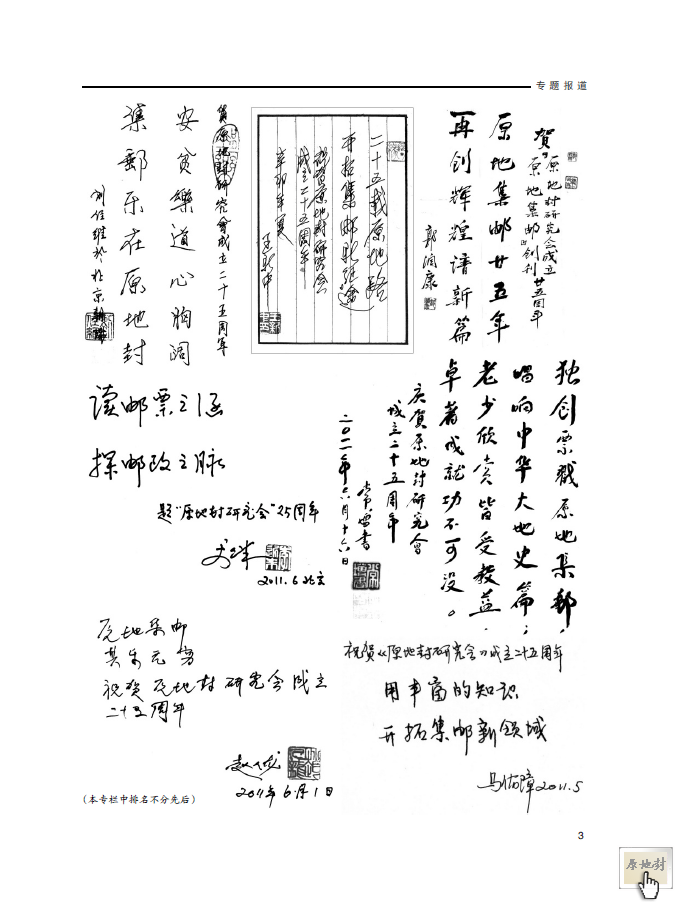 专题报道
贺“原地封研究会成立
原地集邮”创刊 廿五周年
原地集邮廿五年
再创辉煌谱新篇
郭润康
二十五载原地路
开拓集邮新
祝贺原地封研究会
成立二十五周年
辛卯年夏
王新中
贺原地封研究会成立二十五周年
安贫乐道心胸阔
集邮乐在原地封
刘佳维於北京
读邮票之涵
探邮政之脉
题“原地封研究会”25周年
2011.6 北京
独创票戳原地集邮，
唱响中华大地史篇；
老少欣赏皆受教益，
卓著成就功不可没。
庆贺原地封研究会
成立二十五周年
常增书
二〇一一年六月十六日
原地集邮
其乐无穷
祝贺原地封研究会成立
二十五周年
2011年6月1日
祝贺《原地封研究会》成立二十五周年
用丰富的知识
开拓集邮新领域
马佑璋 2011.5
(本专栏中排名不分先后)
3
原地封